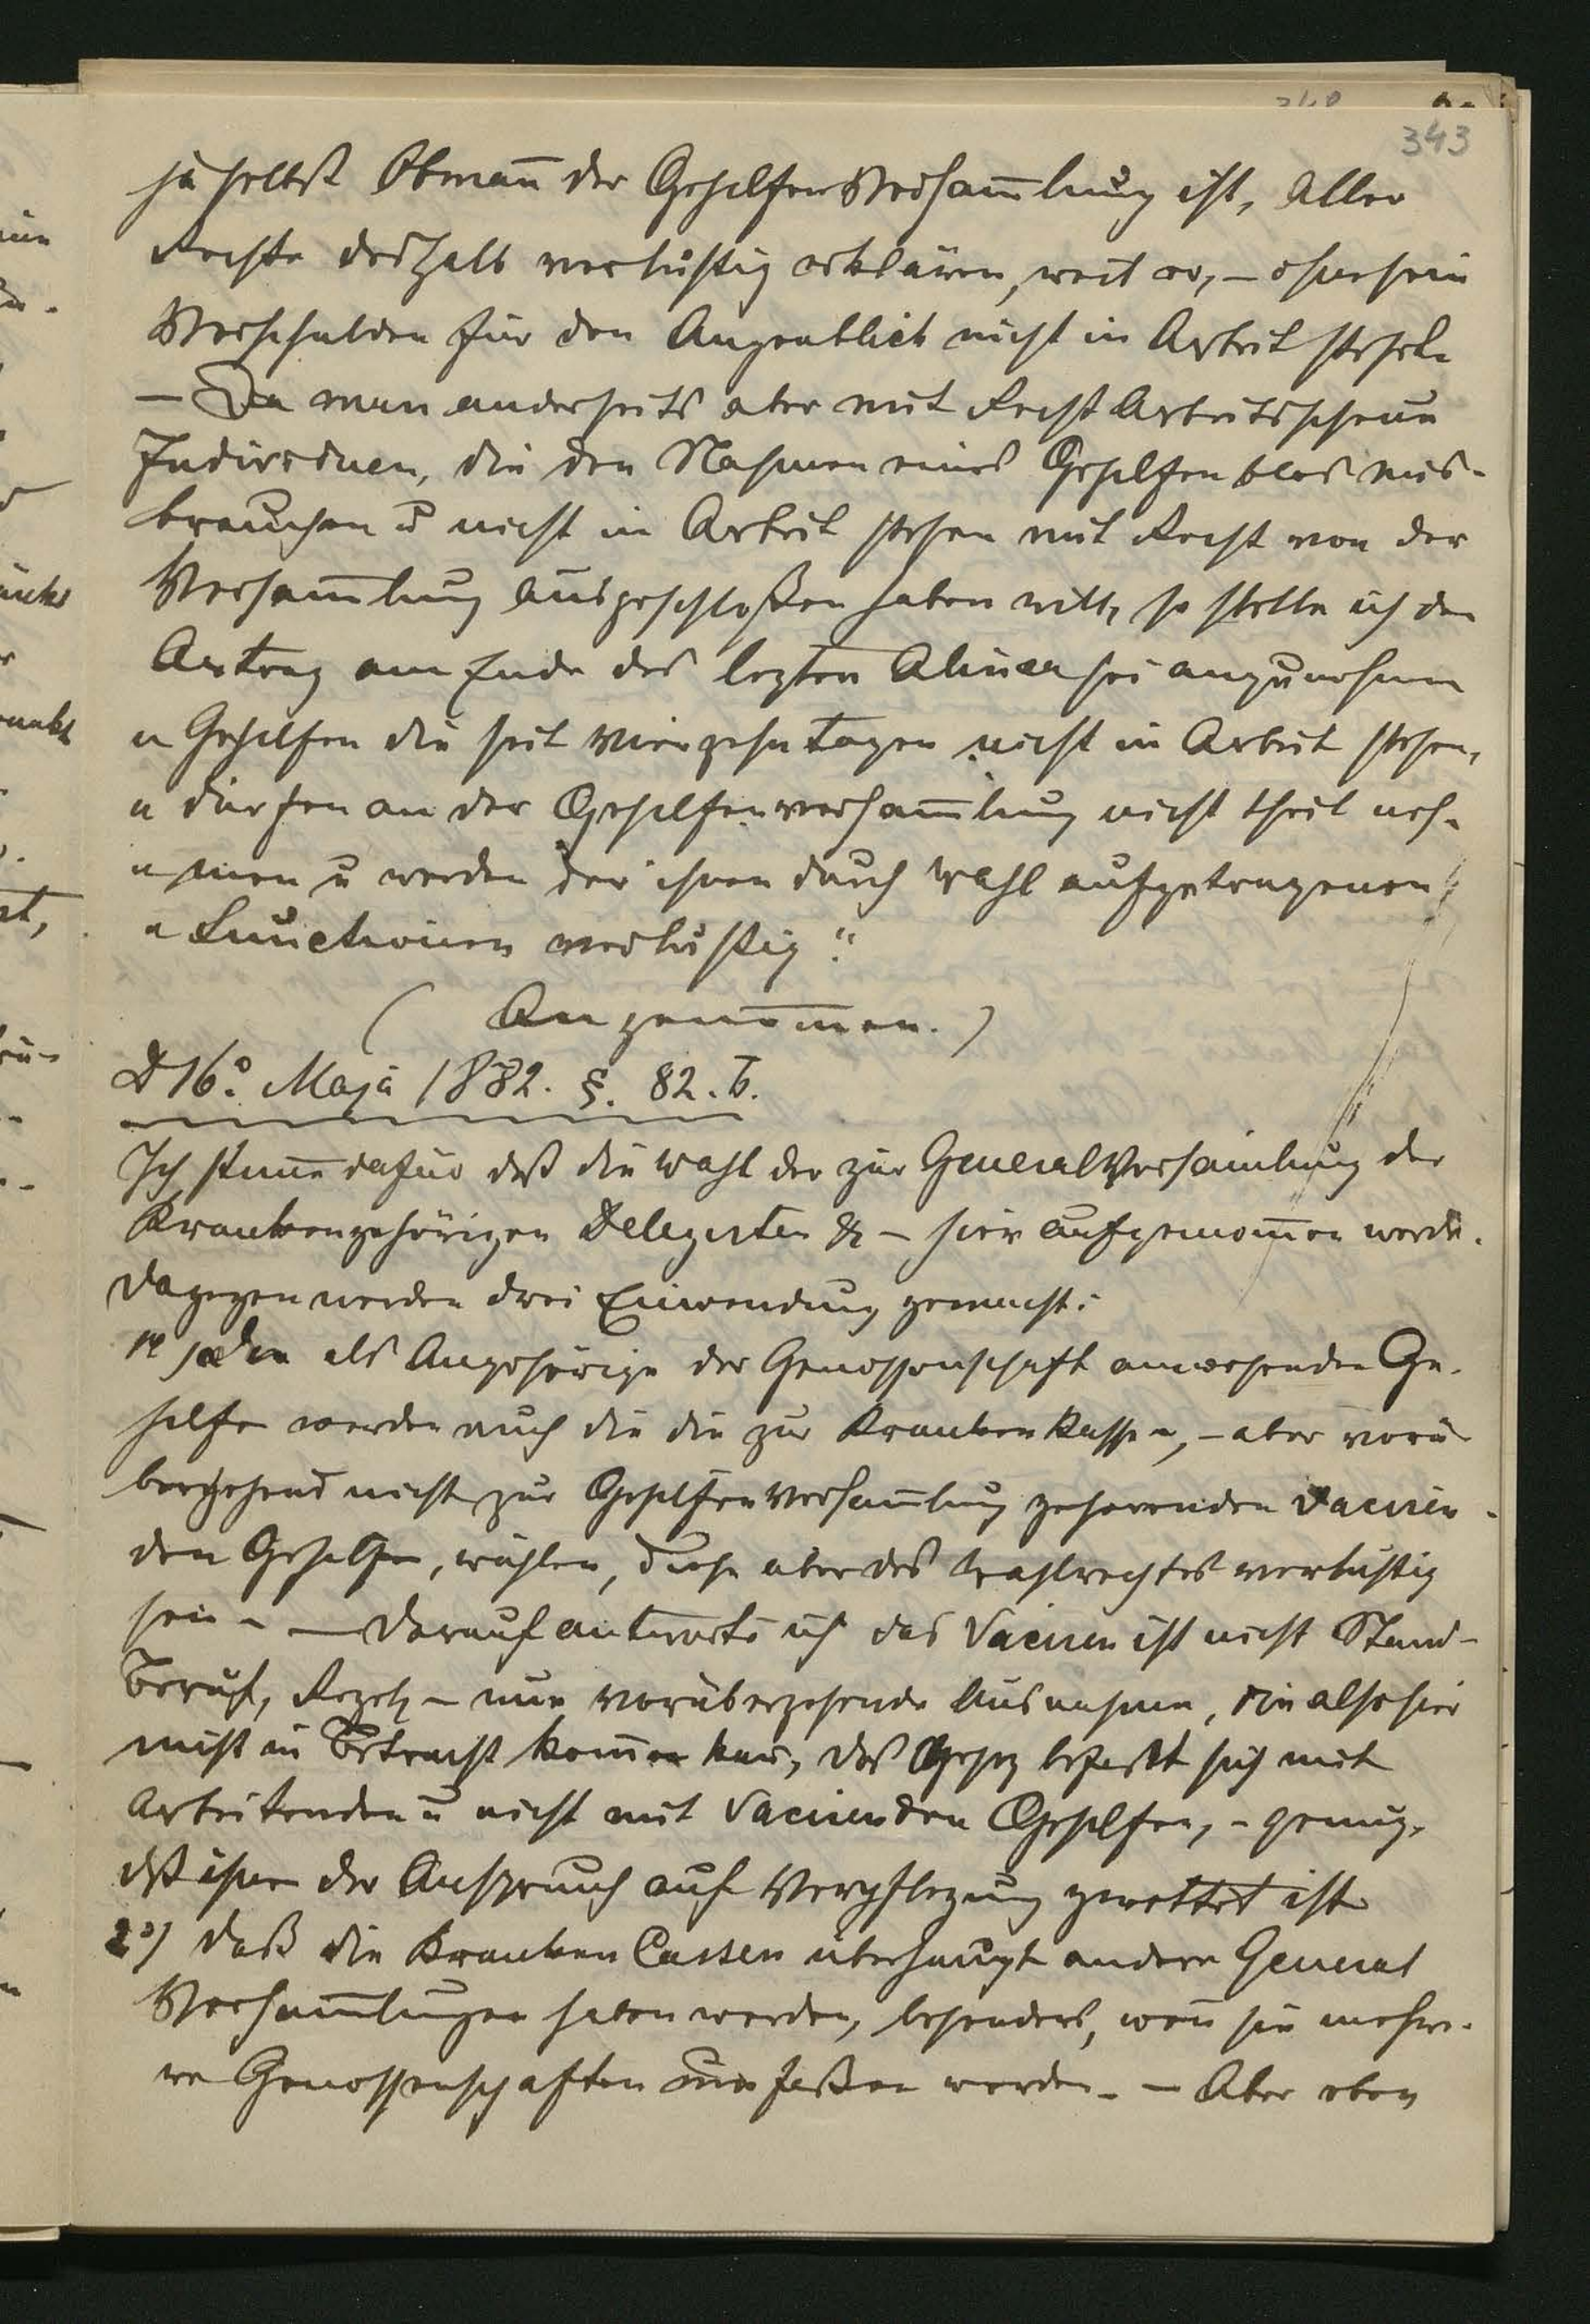 343
ja selbst Obman̄ der Gehilfen Versam̄lung ist, aller
Rechte deshalb verlustig erklären, weil er, – ohne sein
Verschulden für den Augenblick nicht in Arbeit stehe
– Da man anderseits aber mit Recht Arbeitsscheue
Individuen, die den Nahmen eines Gehilfen blos mis-
brauchen u nicht in Arbeit stehen mit Recht von der
Versam̄lung ausgeschloßen haben will, so stelle ich den
Antrag am Ende des lezten Alinea sei anzunehmen
„ Gehilfen die seit vierzehn Tagen nicht in Arbeit stehen,
„ dürfen an der Gehilfenversam̄lung nicht theil neh-
„ men u werden der ihnen durch Wahl aufgetragenen
„ Functionen verlustig.“
( Angenom̄en. )
D 16º Maja 1882. §. 82. b.
Ich stim̄e dafür daß die Wahl der zur General Versam̄lung der
Krankengehörigen Delegirten & – hier aufgenom̄en werde.
Dagegen werden drei Einwendung gemacht:
1º) Den als Angehörige der Genossenschaft anwesenden Ge-
hilfen werden auch die die zur Kranken Kasse, – aber vorü-
bergehend nicht zur Gehilfen Versam̄lung gehörenden vaciren-
den Gehilfen, wählen, diese aber des Wahlrechtes verlustig
sein – – Darauf antworte ich das Vaciren ist nicht Stand –
Beruf, Regel – nur vorübergehende Ausnahme, die also hier
nicht in Betracht kom̄en kan̄, das Gesez befaßt sich mit
Arbeitenden u nicht mit Vacirenden Gehilfen, – genug,
daß ihnen der Anspruch auf Verpflegung gerettet ist
2º) daß die Kranken Cassen überhaupt andere General
Versam̄lungen haben werden, besonders, wen̄ sie mehre-
re Genossenschaften umfaßen werden. – Aber eben